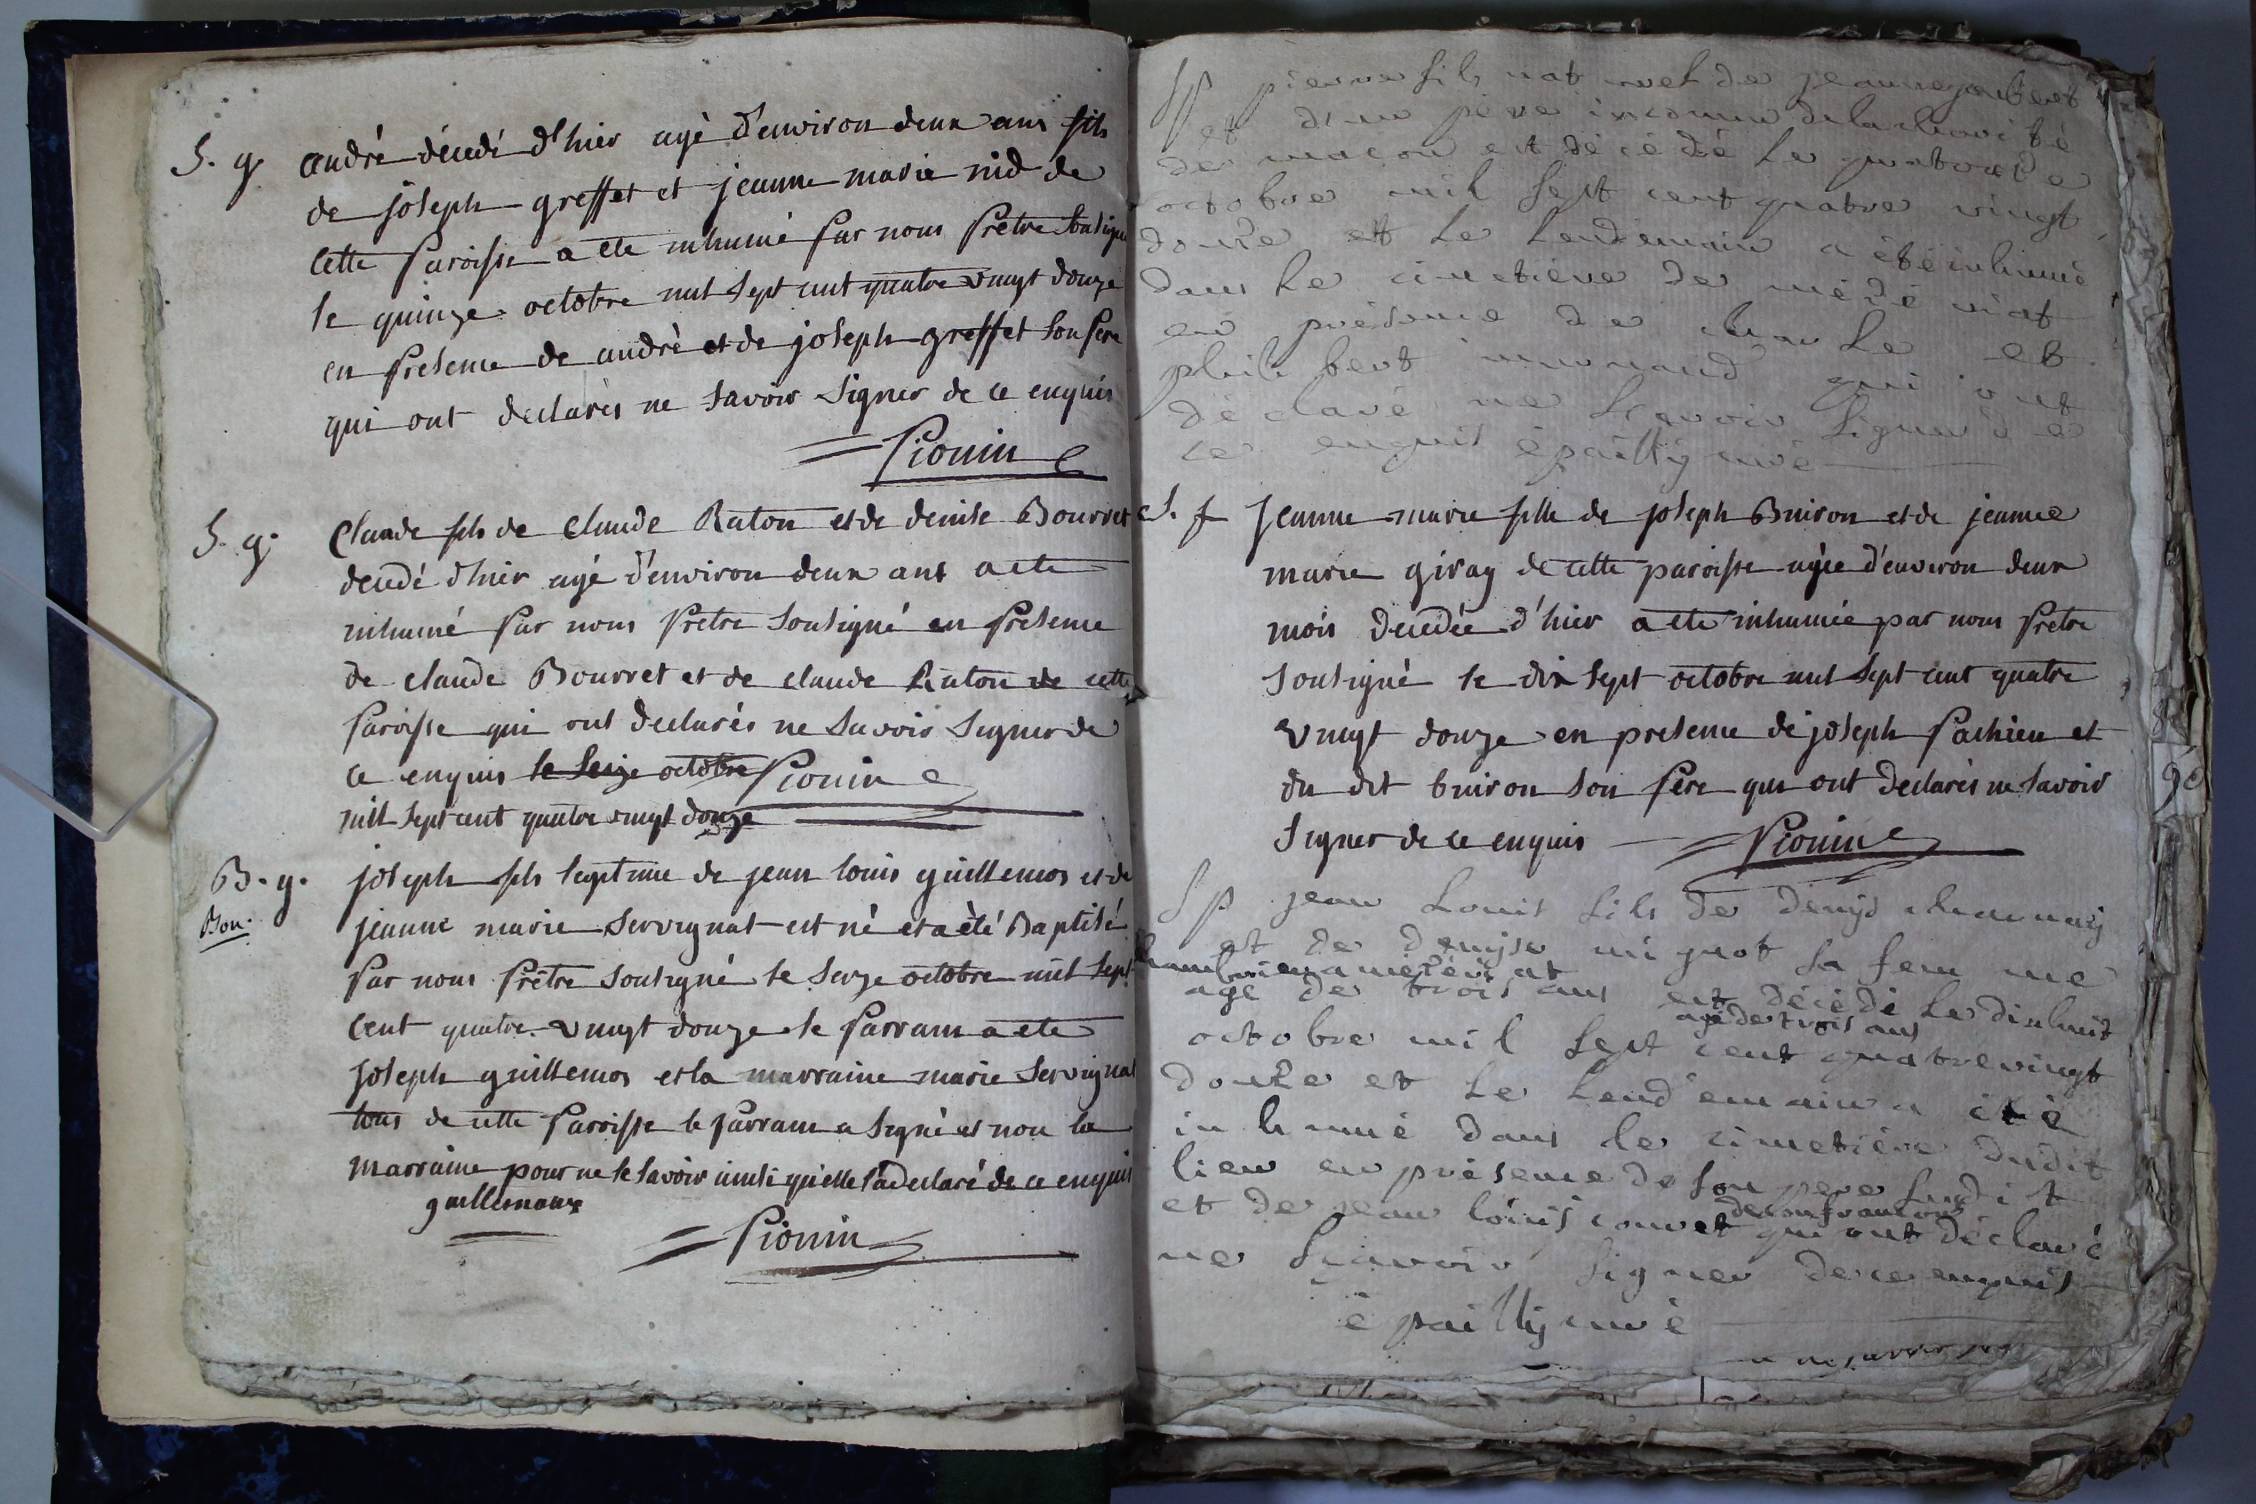 S. g. andré décédé d'hier agé d'environ deux ans fils
de joseph greffet et jeanne marie nid de
cette paroisse a été inhumé par nous prêtre sousigné
le quinze octobre mil sept cent quatre vingt douze
en presence de andrè et de joseph greffet son pere
qui ont declarès ne savoir signer de ce enquis
Pionin
S. g. Claude fils de claude Raton et de denise Bourret
decedé d'hier agé d'environ deux ans a eté
inhumé par nous prêtre sousigné en presence
de claude Bourret et de claude Raton de cette
paroisse qui ont declarés ne savoir signer de
ce enquis le seize octobre Pionin
mil sept cent quatre vingt douze
B. g. joseph fils legitime de jean louis guillemos et de
Bon. jeanne marie servignat est né et a été Baptisé
par nous prêtre sousigné le seize octobre mil sept
cent quatre vingt douze le parrain a eté
joseph guillemos et la marraine marie servignat
tous de cette paroisse le parrain a signé et non la
marraine pour ne le savoir ainsi qu'elle l'a declaré de ce enquis
guillemaux
Pionin
Sp pierre fils naturel de jeanne joubert
et d'un père inconnu de la charité
de macon est décédé le quatorze
octobre mil sept cent quatre vingt
douze et le lendemain a été inhumé
dans le cimetière de
en présence de charle et
philibert qui ont
déclaré ne sçavoir signer de
ce enquis épailly curé
S. f jeanne marie fille de joseph Buiron et de jeanne
marie giray de cette paroisse agée d'environ deux
mois decedée d'hier a eté inhumée par nous prêtre
sousigné le dix sept octobre mil sept cent quatre
vingt douze en presence de joseph Pachieu et
du dit buiron son père qui ont declarés ne savoir
signer de ce enquis Pionin
Sp jean louis fils de denys charnay
et de denyse miguot sa femme
agé de trois ans est décédé le dixhuit
agé de trois ans
octobre mil sept cent quatre vingt
douze et le lendemain a été
inhumé dans le cimetière dudit
lieu en présence de son pere susdit
et de jean loüis couret qui ont déclaré
ne sçavoir signer de ce enquis
épailly curé